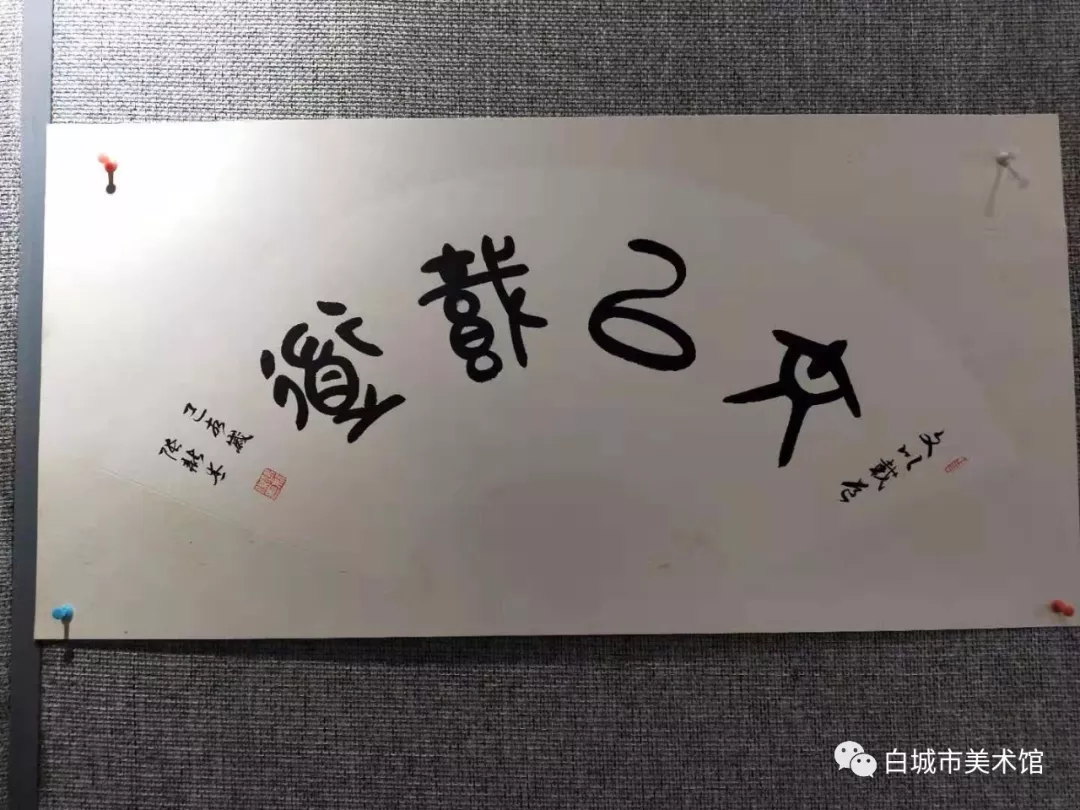 文以載道
文以載道
己亥歲
白城市美术馆